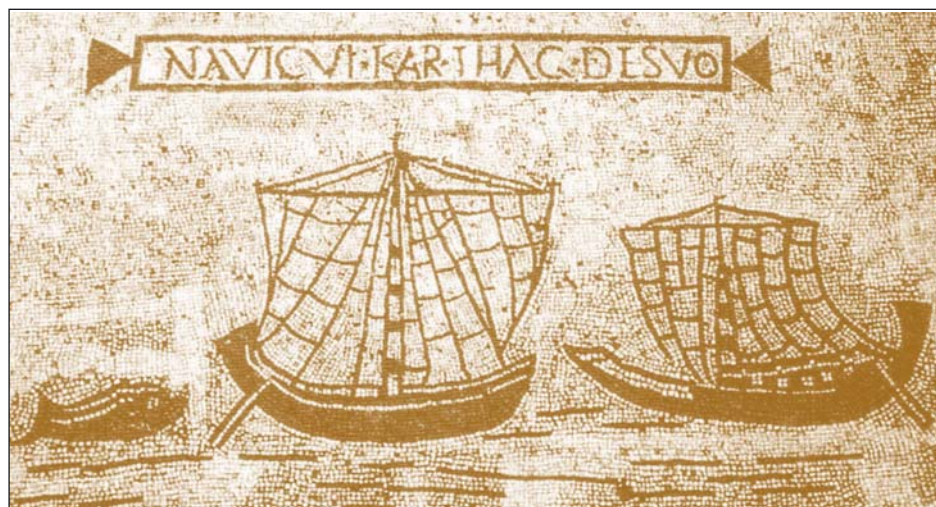 NAVICVL·KAR·THAG·DESVO